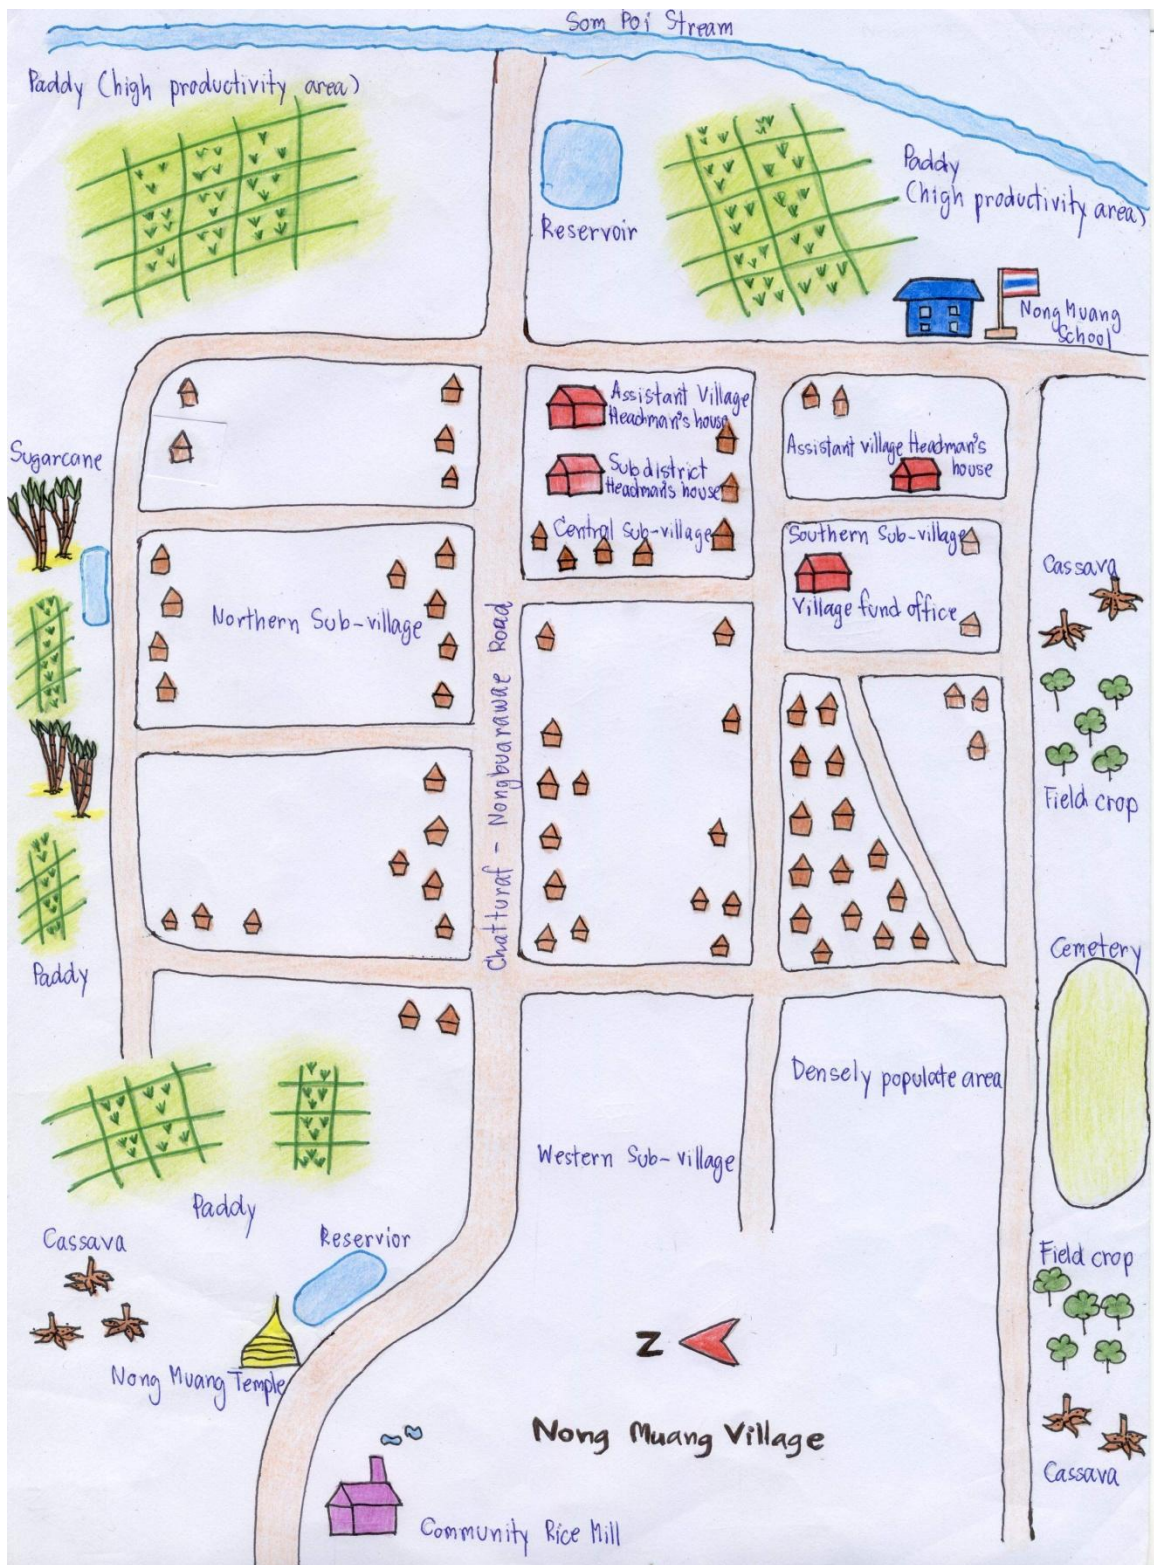 Som Poi Stream
Paddy (high productivity area)
Reservoir
Paddy
(high productivity area)
Nong Muang
School
Assistant Village
Headman's house
Subdistrict
Headman's house
Central Sub-village
Assistant village Headman's
house
Southern Sub-village
Village fund office
Sugarcane
Northern Sub-village
Chatturaf - Nongbuarawae Road
Cassava
Field crop
Paddy
Cemetery
Densely populate area
Western Sub-village
Paddy
Cassava
Reservior
Nong Muang Temple
Field crop
N
Nong Muang Village
Cassava
Community Rice Mill